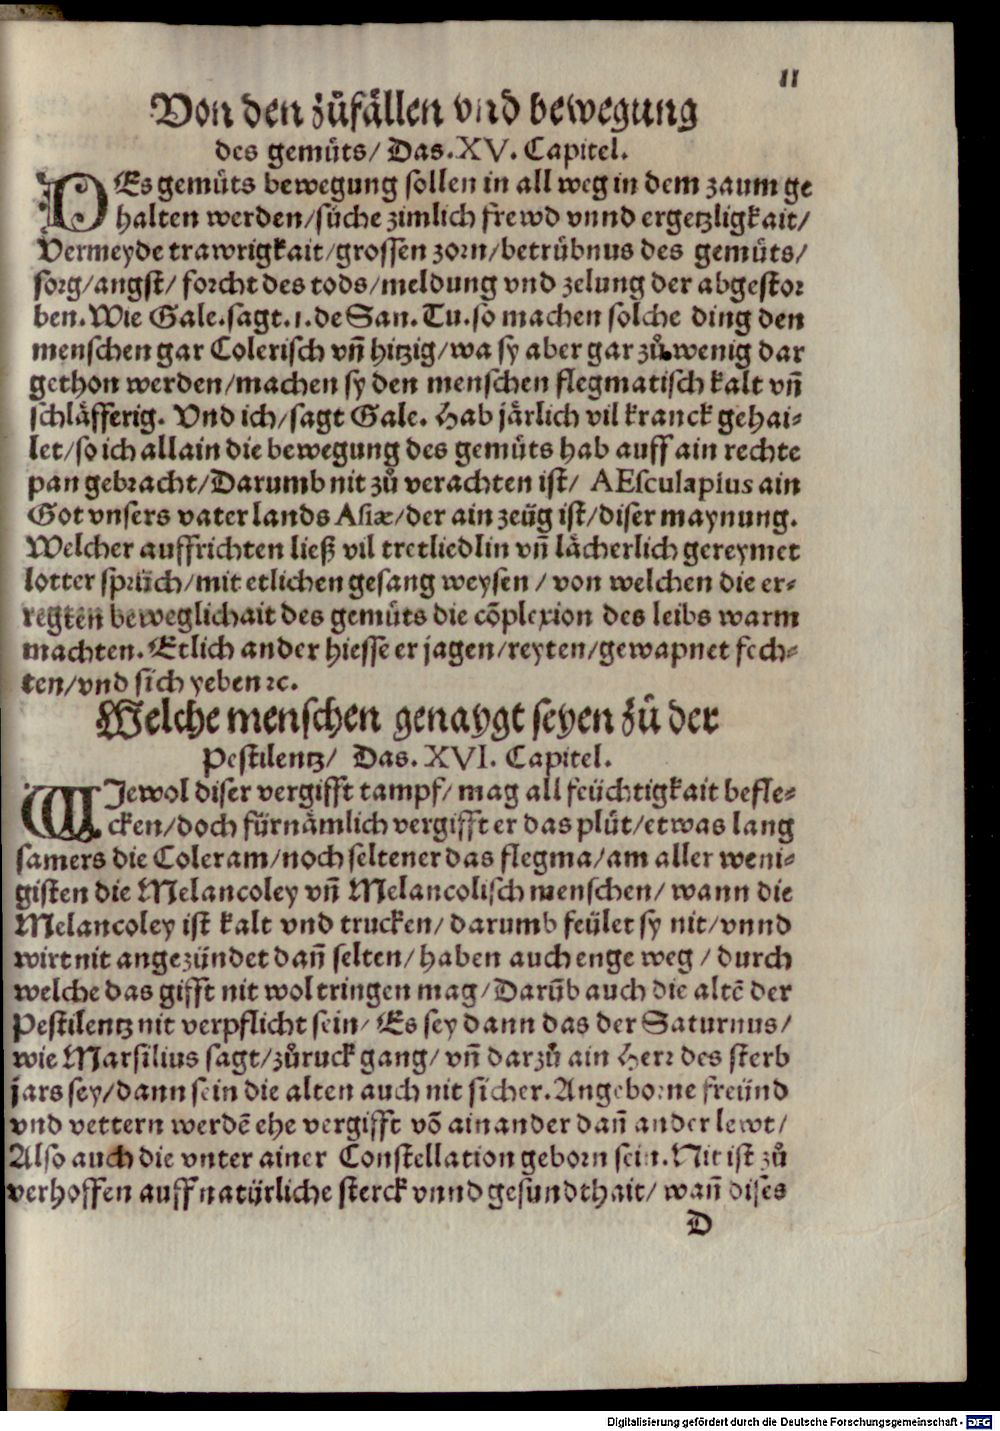 11
Von den zůfällen vnd bewegung
des gemüts/ Das. XV. Capitel.
DEs gemüts bewegung sollen in all weg in dem zaum ge
halten werden/sůche zimlich frewd vnnd ergetzligkait/
Vermeyde trawrigkait/grossen zorn/betrübnus des gemüts/
sorg/angst/ forcht des tods/meldung vnd zelung der abgestor
ben. Wie Gale. sagt. 1. de San. Tu. so machen solche ding den
menschen gar Colerisch vñ hitzig/wa sy aber gar zů wenig dar
gethon werden/machen sy den menschen flegmatisch kalt vñ
schläfferig. Vnd ich/sagt Gale. Hab järlich vil kranck gehai-
let/so ich allain die bewegung des gemüts hab auff ain rechte
pan gebracht/Darumb nit zů verachten ist/ AEsculapius ain
Got vnsers vaterlands Asiæ/der ain zeüg ist/diser maynung.
Welcher auffrichten ließ vil tretliedlin vñ lächerlich gereymet
lotter sprüch/mit etlichen gesang weysen / von welchen die er-
regten beweglichait des gemüts die cõplexion des leibs warm
machten. Etlich ander hiesse er jagen/reyten/gewapnet fech-
ten/vnd sich yeben ꝛc.
Welche menschen genaygt seyen zů der
Pestilentz/ Das. XVI. Capitel.
WIewol diser vergifft tampf/mag all feüchtigkait befle-
cken/doch fürnämlich vergifft er das plůt/etwas lang
samers die Coleram/noch seltener das flegma/am aller weni-
gisten die Melancoley vñ Melancolisch menschen/ wann die
Melancoley ist kalt vnd trucken/darumb feület sy nit/vnnd
wirt nit angezündet dañ selten/haben auch enge weg / durch
welche das gifft nit wol tringen mag/Darũb auch die altẽ der
Pestilentz nit verpflicht sein/ Es sey dann das der Saturnus/
wie Marsilius sagt/zůruck gang/vñ darzů ain Herr des sterb
jars sey/dann sein die alten auch nit sicher. Angeborne freünd
vnd vettern werdẽ ehe vergifft võ ainander dañ ander lewt/
Also auch die vnter ainer Constellation geborn sein. Nit ist zů
verhoffen auff natürliche sterck vnnd gesundthait/ wañ dises
D
Digitalisierung gefördert durch die Deutsche Forschungsgemeinschaft - DFG